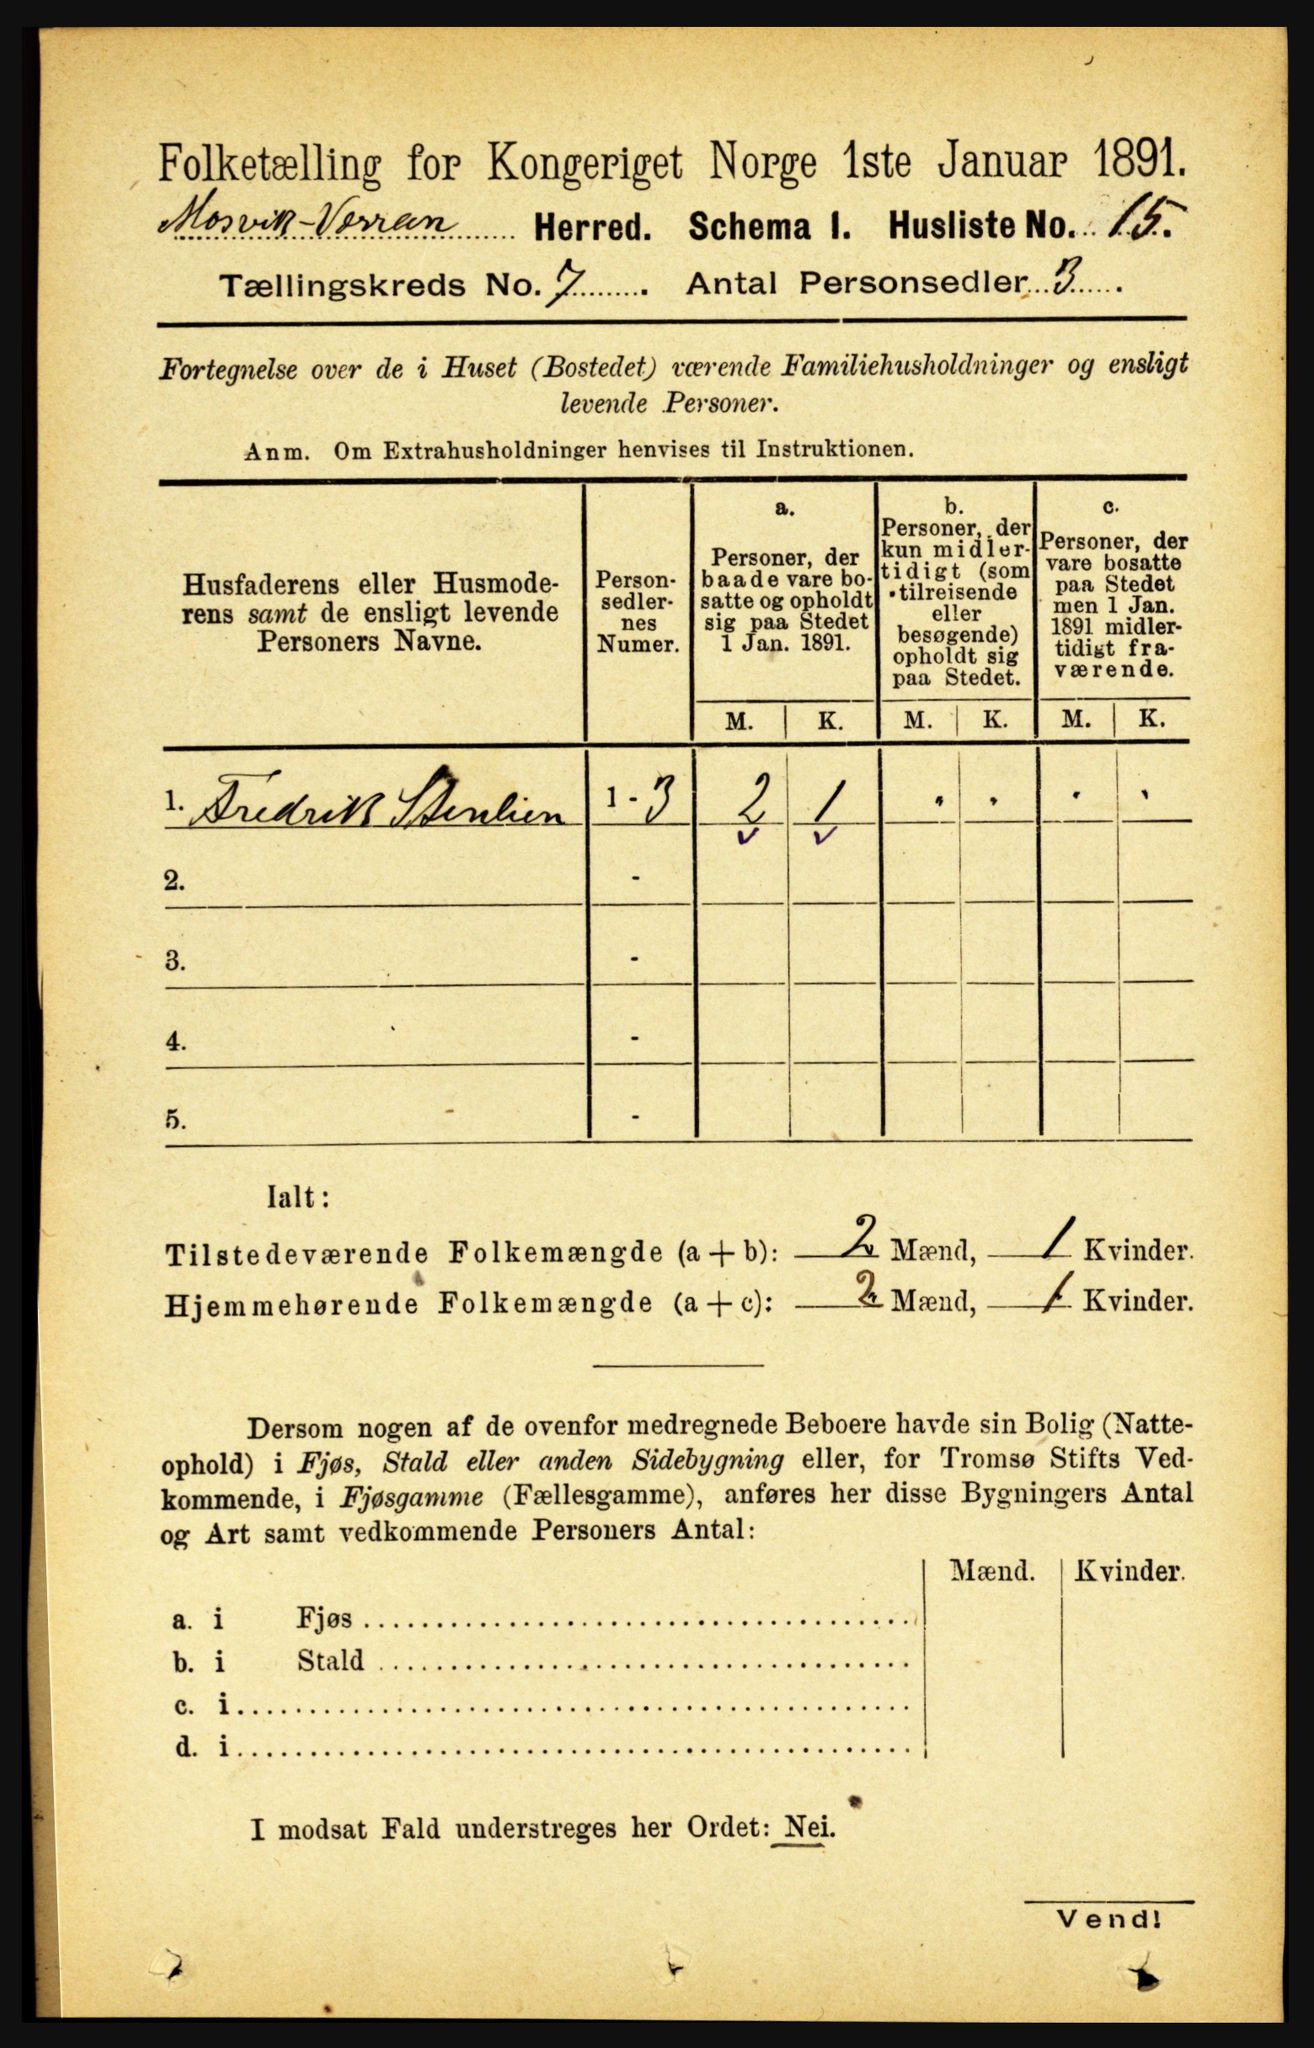 Folketælling for Kongeriget Norge 1ste Januar 1891.
Mosvik-Verran Herred. Schema I. Husliste No. 15.
Tællingskreds No. 7. Antal Personsedler 3.
Fortegnelse over de i Huset (Bostedet) værende Familiehusholdninger og ensligt
levende Personer.
Anm. Om Extrahusholdninger henvises til Instruktionen.
Husfaderens eller Husmode-
rens samt de ensligt levende
Personers Navne.
Person-
sedler-
nes
Numer.
a.
Personer, der
baade vare bo-
satte og opholdt
sig paa Stedet
1 Jan. 1891.
b.
Personer, der
kun midler-
tidigt (som
tilreisende
eller
besøgende)
opholdt sig
paa Stedet.
c.
Personer, der
vare bosatte
paa Stedet
men 1 Jan.
1891 midler-
tidigt fra-
værende.
M. K. M. K. M. K.
1. Fredrik Stenlien 1 - 3 2 1 . . . .
2. -
3. -
4. -
5. -
Ialt:
Tilstedeværende Folkemængde (a + b): 2 Mænd, 1 Kvinder.
Hjemmehørende Folkemængde (a + c): 2 Mænd, 1 Kvinder.
Dersom nogen af de ovenfor medregnede Beboere havde sin Bolig (Natte-
ophold) i Fjøs, Stald eller anden Sidebygning eller, for Tromsø Stifts Ved-
kommende, i Fjøsgamme (Fællesgamme), anføres her disse Bygningers Antal
og Art samt vedkommende Personers Antal:
Mænd. Kvinder.
a. i Fjøs
b. i Stald
c. i
d. i
I modsat Fald understreges her Ordet: Nei.
Vend!